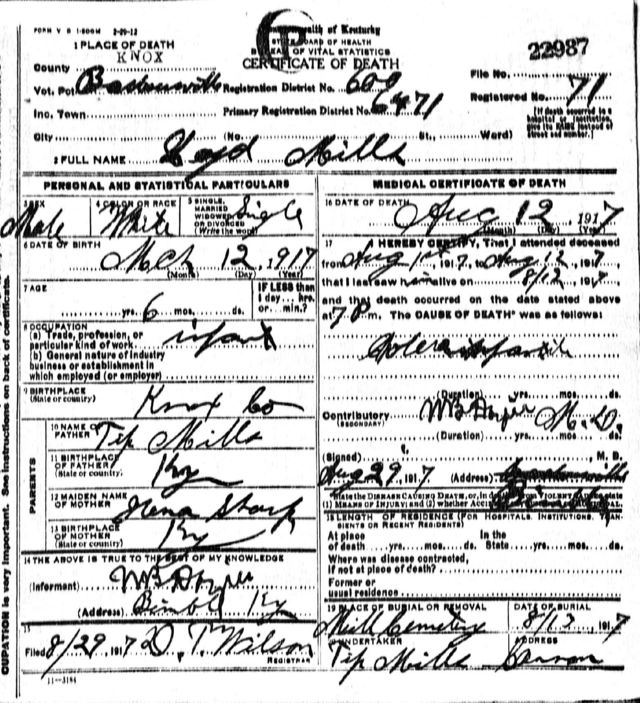 FORM V S 1-500M 3-29-12
Commonwealth of Kentucky
STATE BOARD OF HEALTH
BUREAU OF VITAL STATISTICS
CERTIFICATE OF DEATH
1 PLACE OF DEATH
KNOX
County
22987
File No.
Vot. Pct. Registration District No. 609
Registered No. 71
Inc. Town Primary Registration District No. 6471
[If death occurred in a hospital or institution, give its NAME instead of street and number.]
City (No. St., Ward)
2 FULL NAME Mills
PERSONAL AND STATISTICAL PARTICULARS
3 SEX Male
4 COLOR OR RACE White
5 SINGLE, MARRIED WIDOWED OR DIVORCED (Write the word) Single
6 DATE OF BIRTH Mch 12, 1917
(Month) (Day) (Year)
7 AGE
yrs. 6 mos. ds.
IF LESS than 1 day... hrs. or ... min.?
8 OCCUPATION
(a) Trade, profession, or particular kind of work infant
(b) General nature of industry business or establishment in which employed (or employer)
9 BIRTHPLACE
(State or country) Knox Co
PARENTS
10 NAME OF FATHER Tip Mills
11 BIRTHPLACE OF FATHER (State or country) Ky
12 MAIDEN NAME OF MOTHER
13 BIRTHPLACE OF MOTHER (State or country) Ky
14 THE ABOVE IS TRUE TO THE BEST OF MY KNOWLEDGE
(Informant) WB
(Address) Bimble Ky
15
Filed 8/29, 1917 D. T. Wilson
REGISTRAR
11-3184
MEDICAL CERTIFICATE OF DEATH
16 DATE OF DEATH
Aug 12, 1917
(Month) (Day) (Year)
17 I HEREBY CERTIFY, That I attended deceased
from Aug 1st 1917, to Aug 12, 1917
that I last saw him alive on 8/12, 1917
and that death occurred on the date stated above
at 7 P.m. The CAUSE OF DEATH* was as follows:
Colera infantile
(Duration) yrs. mos. ds.
Contributory
(SECONDARY)
WB M.D.
(Duration) yrs. mos. ds.
(Signed) , M.D.
Aug 29, 1917 (Address)
*State the DISEASE CAUSING DEATH, or, in deaths from VIOLENT CAUSES state (1) MEANS OF INJURY; and (2) whether
18 LENGTH OF RESIDENCE (FOR HOSPITALS, INSTITUTIONS, TRANSIENTS OR RECENT RESIDENTS)
At place of death yrs. mos. ds. In the State yrs. mos. ds.
Where was disease contracted, if not at place of death?
Former or usual residence
19 PLACE OF BURIAL OR REMOVAL Mill Cemetery
DATE OF BURIAL 8/13 1917
20 UNDERTAKER Tip Mills
ADDRESS Cannon
CUPATION is very important. See instructions on back of certificate.